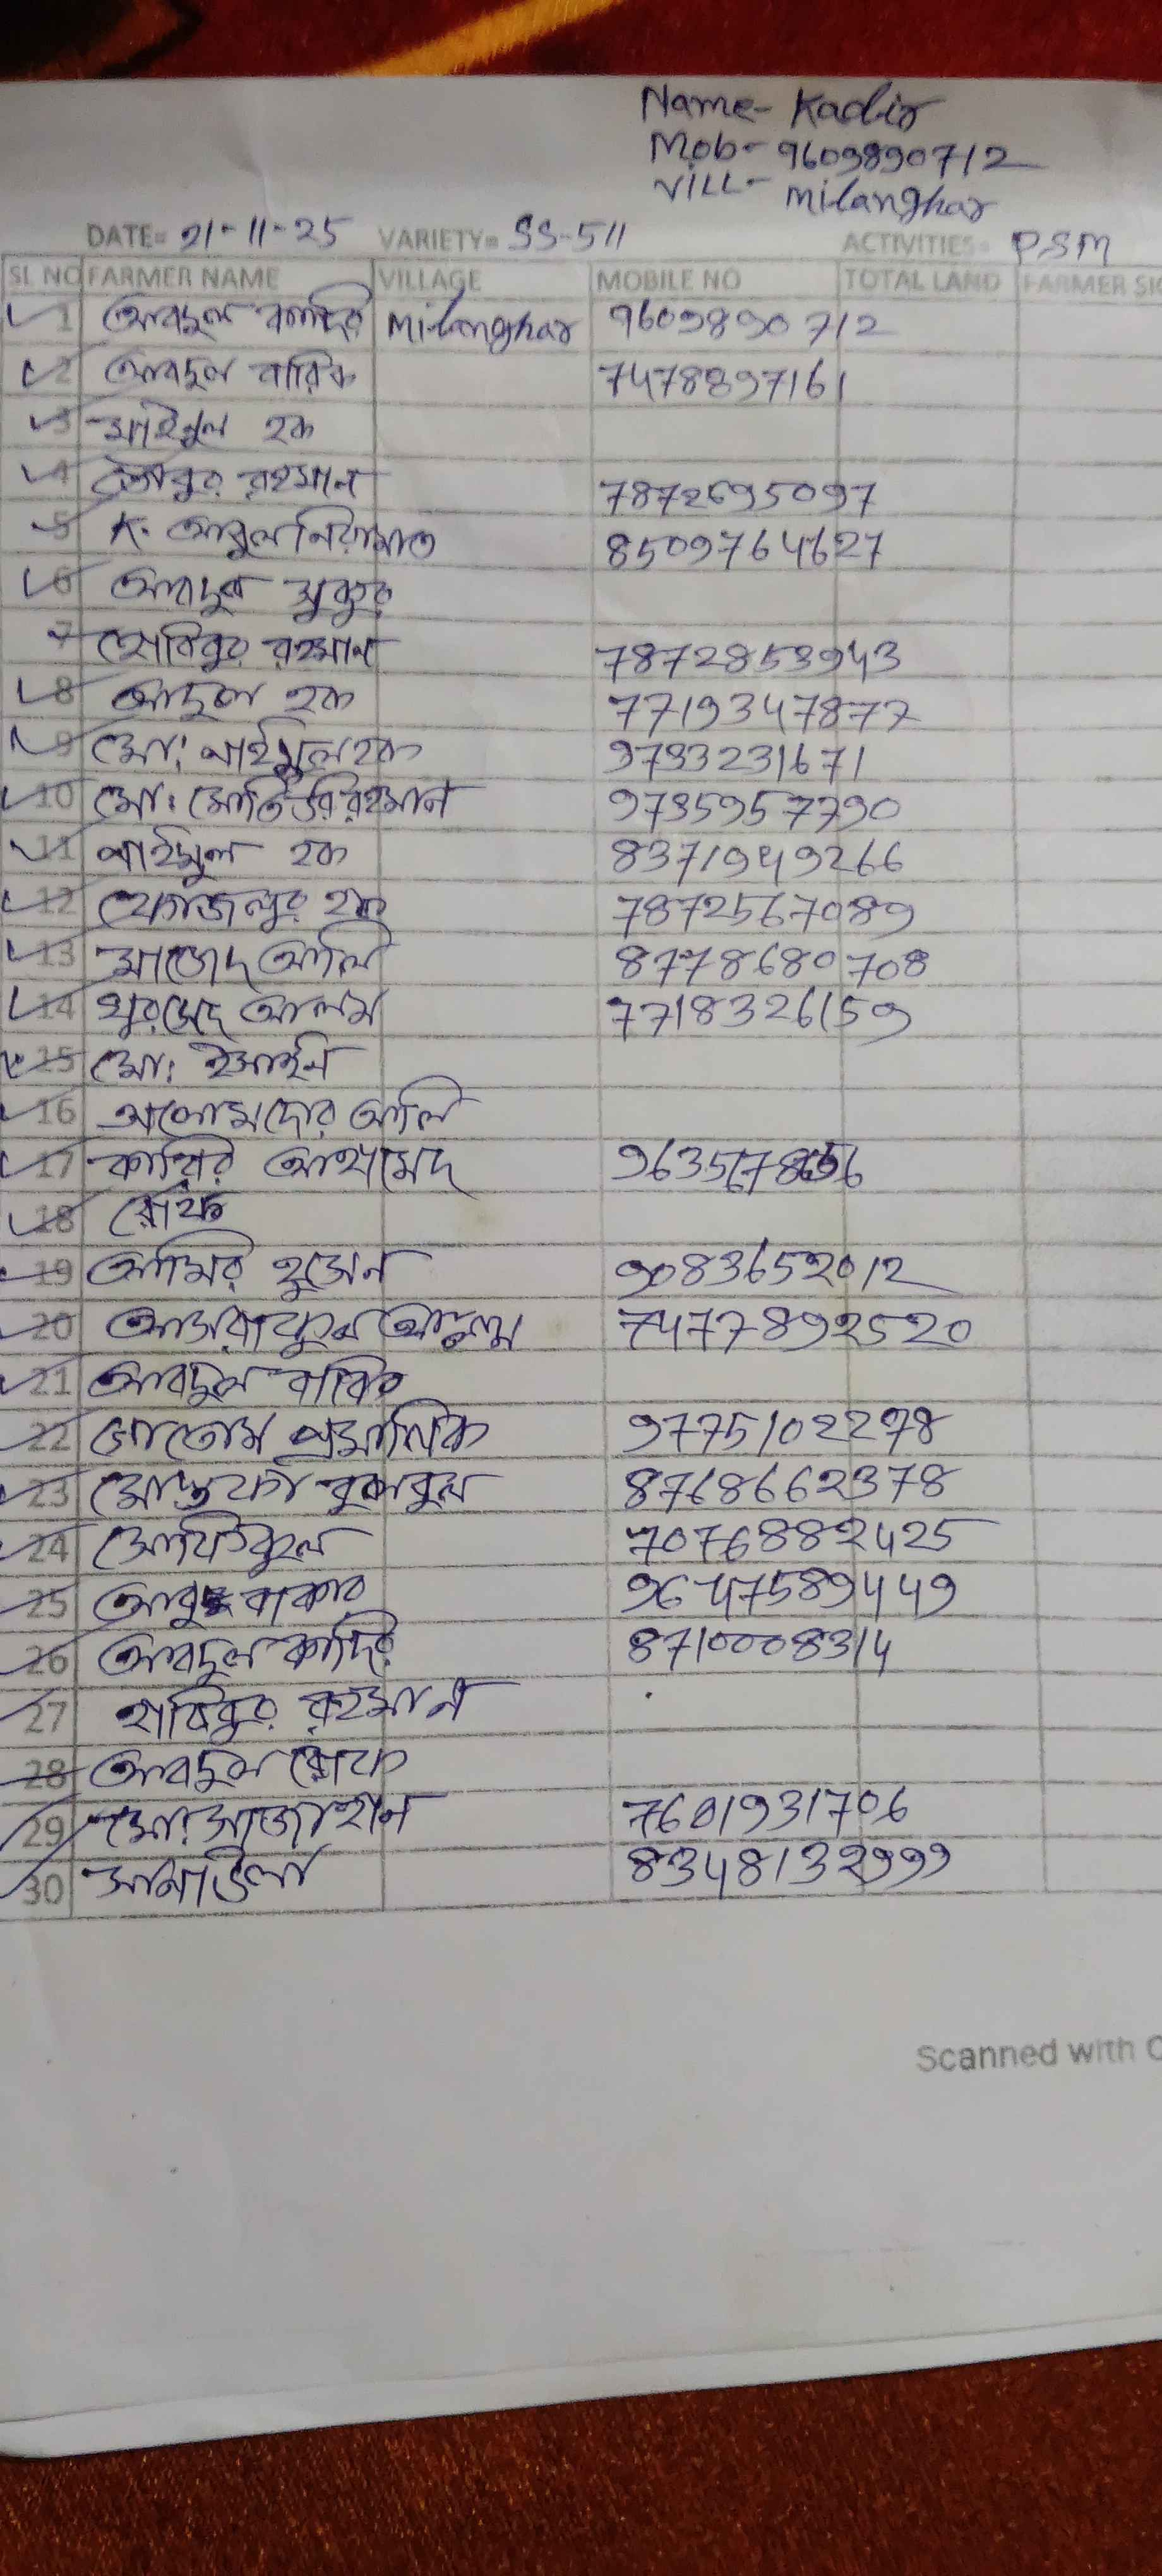 Name- Kadir
Mob- 9609890712
VILL- Milanghar
DATE= 21-11-25 VARIETY= SS-511 ACTIVITIES= PSM
SL NO FARMER NAME VILLAGE MOBILE NO TOTAL LAND FARMER SIG
1 আবদুল কাদির Milanghar 9609890712
2 আবদুল বারিক 7478897161
3 মাইনুল হক
4 রহমান 7872695097
5 K. আবুল নিয়ামাত 8509764627
6 আবদুল সুকুর
7 রহমান 7872853943
8 আদুল হক 7719347877
9 মো: হক 9733231671
10 মো: মোতিউর রহমান 9735957790
11 হক 8371949266
12 ফোজলুর হক 7872567089
13 মাজেদ আলি 8778680708
14 খুরসেদ আলম 7718326159
15 মো:
16 আলি
17 কাবির আহামেদ
18 রোফ
19 আমির হুসেন 9083652012
20 7477892520
21 আবদুল
22 প্রমানিক 9775102278
23 মোস্তফা বুলবুল 8768662378
24 70768882425
25 আবু বাকার 9647589449
26 আবদুল কাদির 8710008314
27 হাবিবুর রহমান
28 আবদুল রোফ
29 মো: সাজাহান 7601931706
30 8348132999
Scanned with C